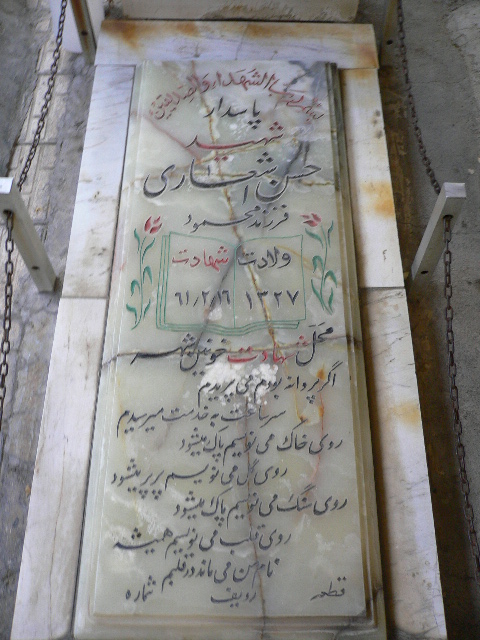 بسم رب الشهداء والصدیقین
پاسدار
شهید
حسن اشعاری
فرزند محمود
ولادت شهادت
۱۳۲۷ ۶۱/۲/۱۶
محل شهادت خونین شهر
اگر پروانه بودم می پریدم
سر ساعت به خدمت میرسیدم
روی خاک می نویسم پاک میشود
روی گل می نویسم پرپر میشود
روی سنگ می نویسم پاک میشود
روی قلب می نویسم همیشه
نام من می ماند در قلبم
قطعه ردیف شماره